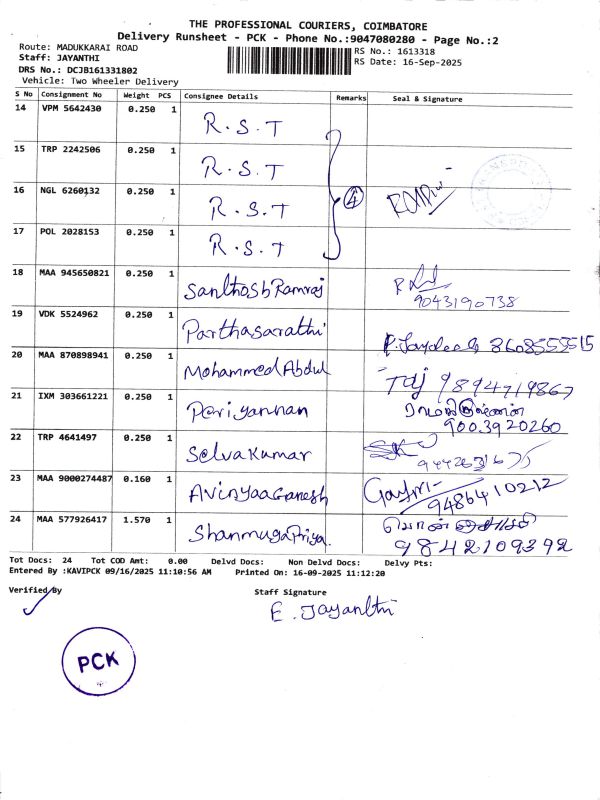 THE PROFESSIONAL COURIERS, COIMBATORE
Delivery Runsheet - PCK - Phone No.:9047080280 - Page No.:2
Route: MADUKKARAI ROAD
Staff: JAYANTHI
DRS No.: DCJB161331802
Vehicle: Two Wheeler Delivery
RS No.: 1613318
RS Date: 16-Sep-2025
S No Consignment No Weight PCS Consignee Details Remarks Seal & Signature
14 VPM 5642430 0.250 1 R.S.T
15 TRP 2242506 0.250 1 R.S.T
16 NGL 6260132 0.250 1 R.S.T 4
17 POL 2028153 0.250 1 R.S.T
18 MAA 945650821 0.250 1 Santhosh Ramraj 9043190738
19 VDK 5524962 0.250 1 Parthasarathi
20 MAA 870898941 0.250 1 Mohammed Abdul 9894719867
21 IXM 303661221 0.250 1 Periyannan 9003920260
22 TRP 4641497 0.250 1 Selvakumar
23 MAA 9000274487 0.160 1 Avinyaa Ganesh 9486410212
24 MAA 577926417 1.570 1 ShanmugaPriya 9842109392
Tot Docs: 24 Tot COD Amt: 0.00 Delvd Docs: Non Delvd Docs: Delvy Pts:
Entered By :KAVIPCK 09/16/2025 11:10:56 AM Printed On: 16-09-2025 11:12:20
Verified By
Staff Signature
E. Jayanthi
PCK